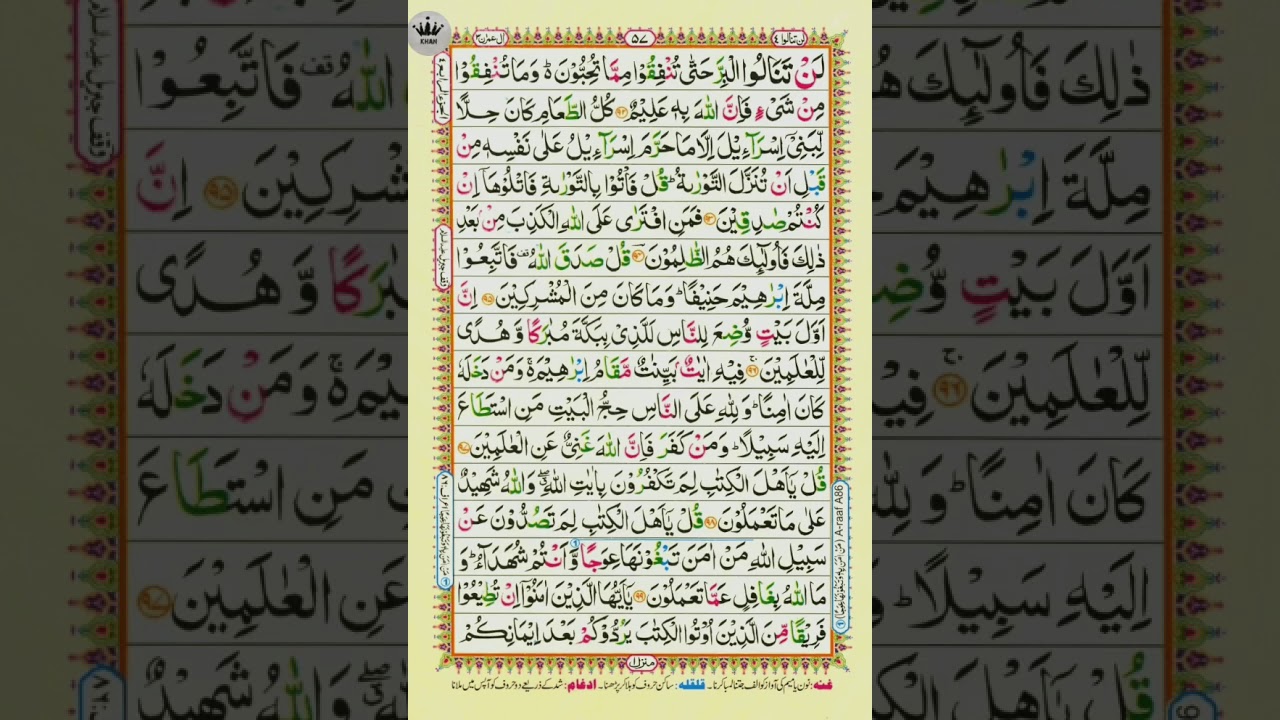 KHAN
لن تنالوا ٤
٥٧
اٰل عمرٰن ٣
لَنۡ تَنَالُوا الۡبِرَّ حَتّٰى تُنۡفِقُوۡا مِمَّا تُحِبُّوۡنَ ؕ وَمَا تُنۡفِقُوۡا
مِنۡ شَىۡءٍ فَاِنَّ اللّٰهَ بِهٖ عَلِيۡمٌ ﴿۹۲﴾ كُلُّ الطَّعَامِ كَانَ حِلًّا
لِّبَنِىۡۤ اِسۡرَآءِيۡلَ اِلَّا مَا حَرَّمَ اِسۡرَآءِيۡلُ عَلٰى نَفۡسِهٖ مِنۡ
قَبۡلِ اَنۡ تُنَزَّلَ التَّوۡرٰٮةُ ؕ قُلۡ فَاۡتُوۡا بِالتَّوۡرٰٮةِ فَاتۡلُوۡهَاۤ اِنۡ
كُنۡتُمۡ صٰدِقِيۡنَ ﴿۹۳﴾ فَمَنِ افۡتَرٰى عَلَى اللّٰهِ الۡكَذِبَ مِنۡۢ بَعۡدِ
ذٰلِكَ فَاُولٰٓٮِٕكَ هُمُ الظّٰلِمُوۡنَ ﴿۹۴﴾ قُلۡ صَدَقَ اللّٰهُ ۗ فَاتَّبِعُوۡا
مِلَّةَ اِبۡرٰهِيۡمَ حَنِيۡفًا ؕ وَمَا كَانَ مِنَ الۡمُشۡرِكِيۡنَ ﴿۹۵﴾ اِنَّ
اَوَّلَ بَيۡتٍ وُّضِعَ لِلنَّاسِ لَلَّذِىۡ بِبَكَّةَ مُبٰرَكًا وَّهُدًى
لِّلۡعٰلَمِيۡنَ ﴿۹۶﴾ فِيۡهِ اٰيٰتٌۢ بَيِّنٰتٌ مَّقَامُ اِبۡرٰهِيۡمَ ۚ وَمَنۡ دَخَلَهٗ
كَانَ اٰمِنًا ؕ وَلِلّٰهِ عَلَى النَّاسِ حِجُّ الۡبَيۡتِ مَنِ اسۡتَطَاعَ
اِلَيۡهِ سَبِيۡلًا ؕ وَمَنۡ كَفَرَ فَاِنَّ اللّٰهَ غَنِىٌّ عَنِ الۡعٰلَمِيۡنَ ﴿۹۷﴾
قُلۡ يٰۤاَهۡلَ الۡكِتٰبِ لِمَ تَكۡفُرُوۡنَ بِاٰيٰتِ اللّٰهِ ۖ وَاللّٰهُ شَهِيۡدٌ
عَلٰى مَا تَعۡمَلُوۡنَ ﴿۹۸﴾ قُلۡ يٰۤاَهۡلَ الۡكِتٰبِ لِمَ تَصُدُّوۡنَ عَنۡ
سَبِيۡلِ اللّٰهِ مَنۡ اٰمَنَ تَبۡغُوۡنَهَا عِوَجًا وَّاَنۡتُمۡ شُهَدَآءُ ؕ وَ
مَا اللّٰهُ بِغَافِلٍ عَمَّا تَعۡمَلُوۡنَ ﴿۹۹﴾ يٰۤاَيُّهَا الَّذِيۡنَ اٰمَنُوۡۤا اِنۡ تُطِيۡعُوۡا
فَرِيۡقًا مِّنَ الَّذِيۡنَ اُوۡتُوا الۡكِتٰبَ يَرُدُّوۡكُمۡ بَعۡدَ اِيۡمَانِكُمۡ
منزل ١
A-raaf A86
غنہ: نون یا میم کی آواز کو الف جتنا لمبا کرنا۔ قلقلہ: ساکن حروف کو ہلا کر پڑھنا۔ ادغام: شد کے ذریعے دو حروف کو آپس میں ملانا